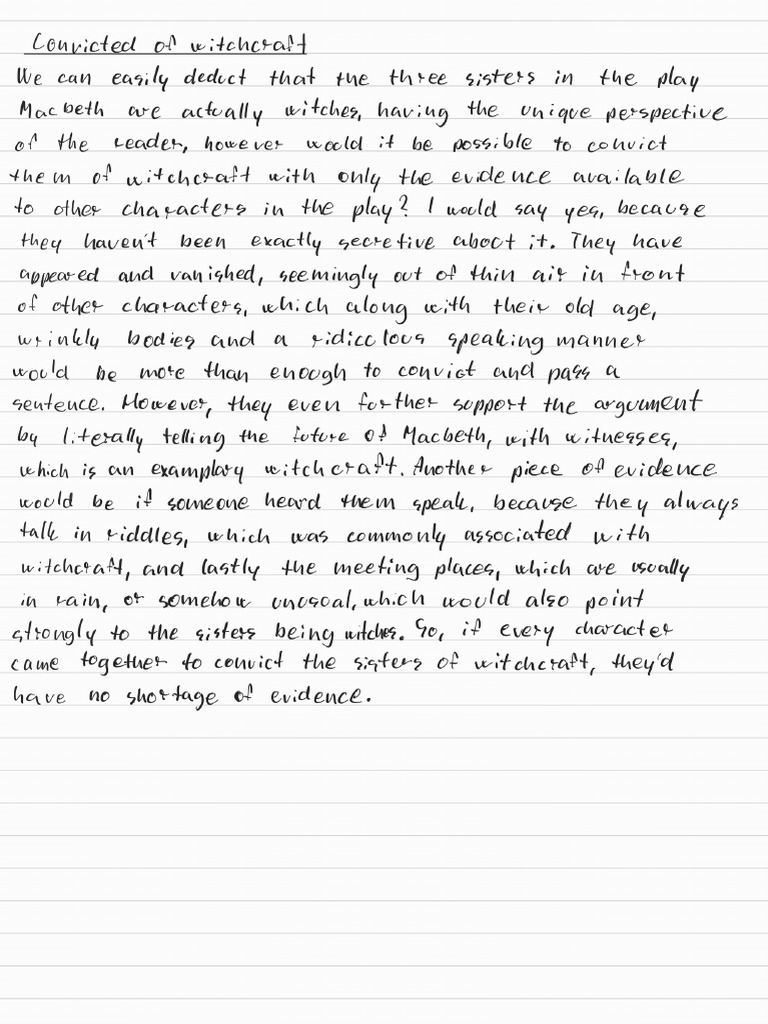 Convicted of witchcraft
We can easily deduct that the three sisters in the play
Macbeth are actually witches, having the unique perspective
of the reader, however would it be possible to convict
them of witchcraft with only the evidence available
to other characters in the play? I would say yes, because
they haven't been exactly secretive about it. They have
appeared and vanished, seemingly out of thin air in front
of other characters, which along with their old age,
wrinkly bodies and a ridiculous speaking manner
would be more than enough to convict and pass a
sentence. However, they even further support the argument
by literally telling the future of Macbeth, with witnesses,
which is an examplary witchcraft. Another piece of evidence
would be if someone heard them speak, because they always
talk in riddles, which was commonly associated with
witchcraft, and lastly the meeting places, which are usually
in rain, or somehow unusual, which would also point
strongly to the sisters being witches. So, if every character
came together to convict the sisters of witchcraft, they'd
have no shortage of evidence.